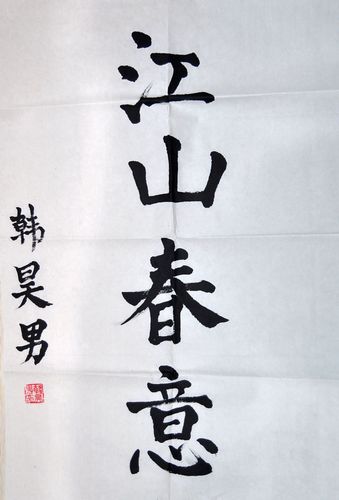 江山春意
韩昊男